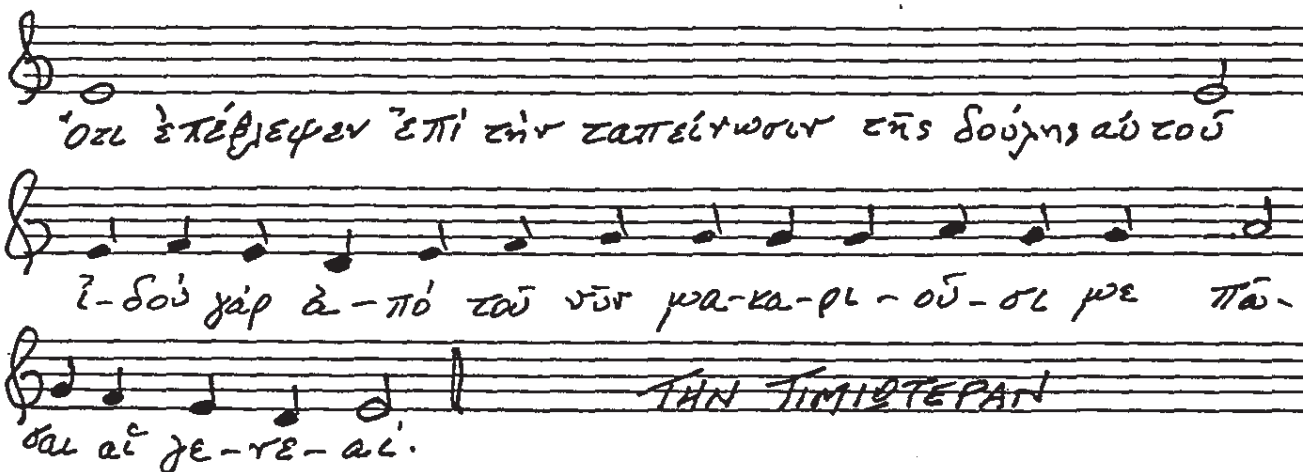 Ὅτι ἐπέβλεψεν ἐπί τήν ταπείνωσιν τῆς δούλης αὐτοῦ
ἰ-δού γάρ ἀ-πό τοῦ νῦν μα-κα-ρι-οῦ-σι με πᾶ-
ΤΗΝ ΤΙΜΙΩΤΕΡΑΝ
σαι αἱ γε-νε-αί.